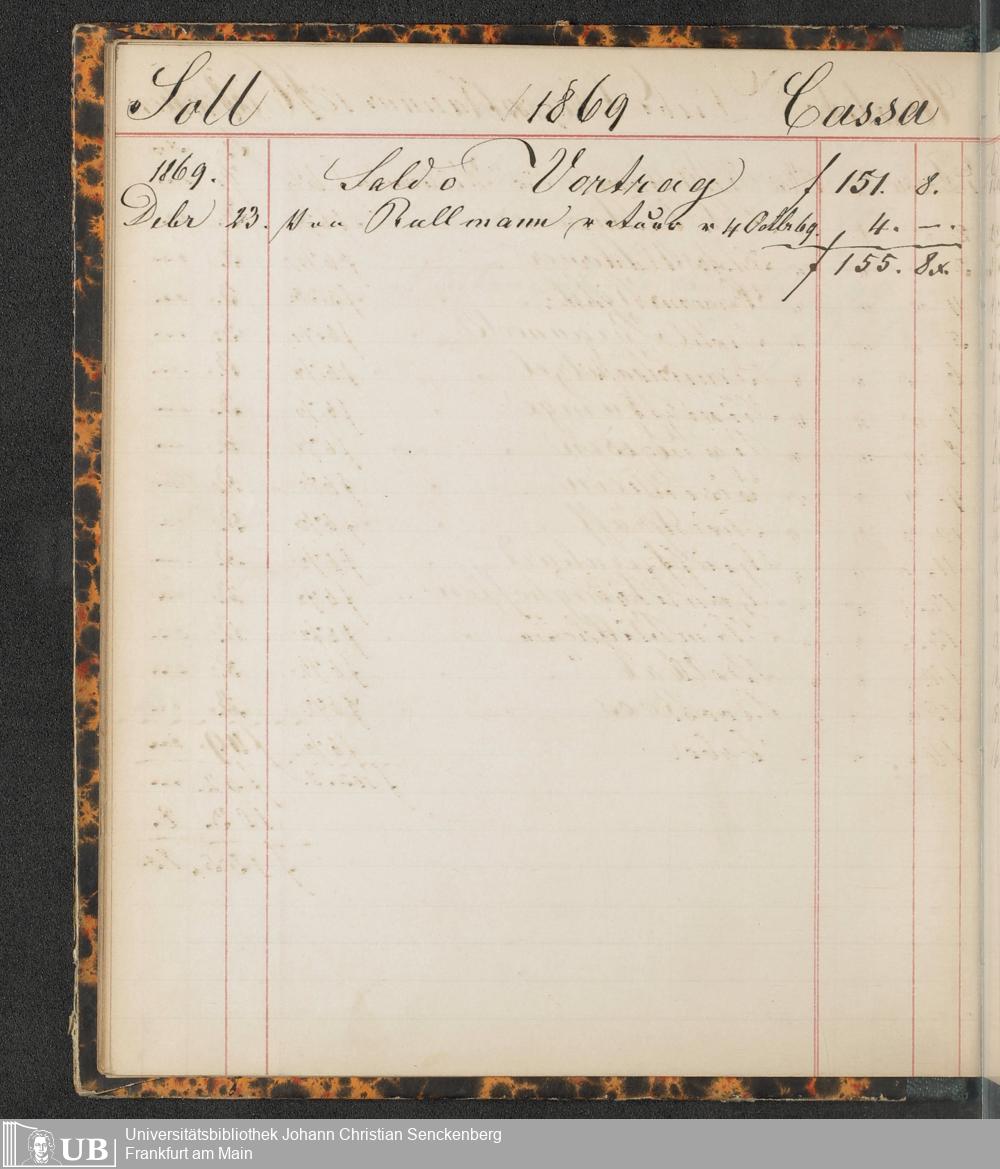 Soll 1869 Cassa
1869. Saldo Vortrag f 151. 8.
Debr 23. Von Rallmann retour v 4 Octbr 69. " 4. —.
f 155. 8 x.
UB Universitätsbibliothek Johann Christian Senckenberg
Frankfurt am Main